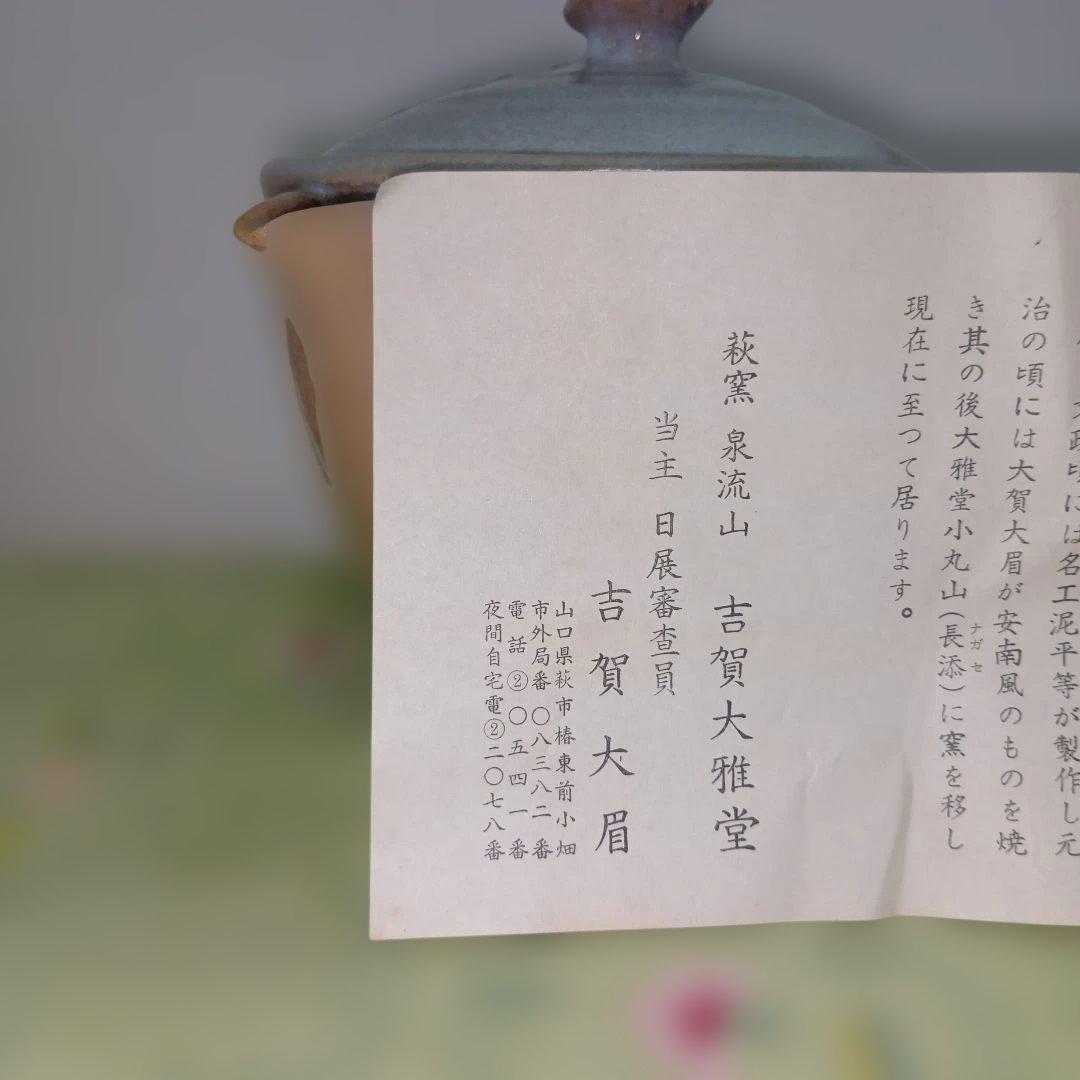 政頃には名工泥平等が製作し元
治の頃には大賀大眉が安南風のものを焼
き其の後大雅堂小丸山(長添)に窯を移し
ナガセ
現在に至つて居ります。
萩窯 泉流山 吉賀大雅堂
当主 日展審査員
吉賀大眉
山口県萩市椿東前小畑
市外局番〇八三八二番
電話②〇五四一番
夜間自宅電②二〇七八番